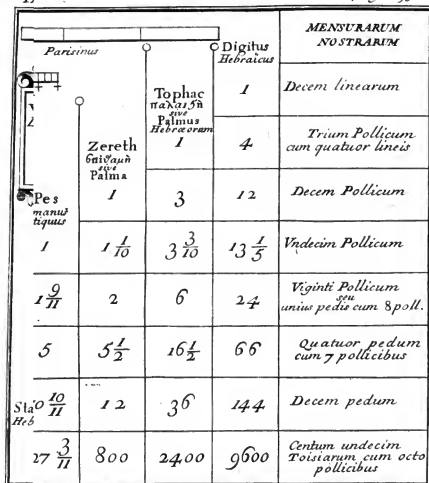 Parisinus
Digitus
Hebraicus
MENSURARUM
NOSTRARUM
1
Decem linearum
Tophac
παλαιϛη
sive
Palmus
Hebræorum
1
4
Trium Pollicum
cum quatuor lineis
Zereth
σπιθαμη
sive
Palma
1
3
12
Decem Pollicum
Pes
manus
tiquus
1
1 1/10
3 3/10
13 1/5
Vndecim Pollicum
1 9/11
2
6
24
Viginti Pollicum
seu
unius pedis cum 8 poll.
5
5 1/2
16 1/2
66
Quatuor pedum
cum 7 pollicibus
Sta
Heb
0 10/11
12
36
144
Decem pedum
27 3/11
800
2400
9600
Centum undecim
Toisiarum cum octo
pollicibus